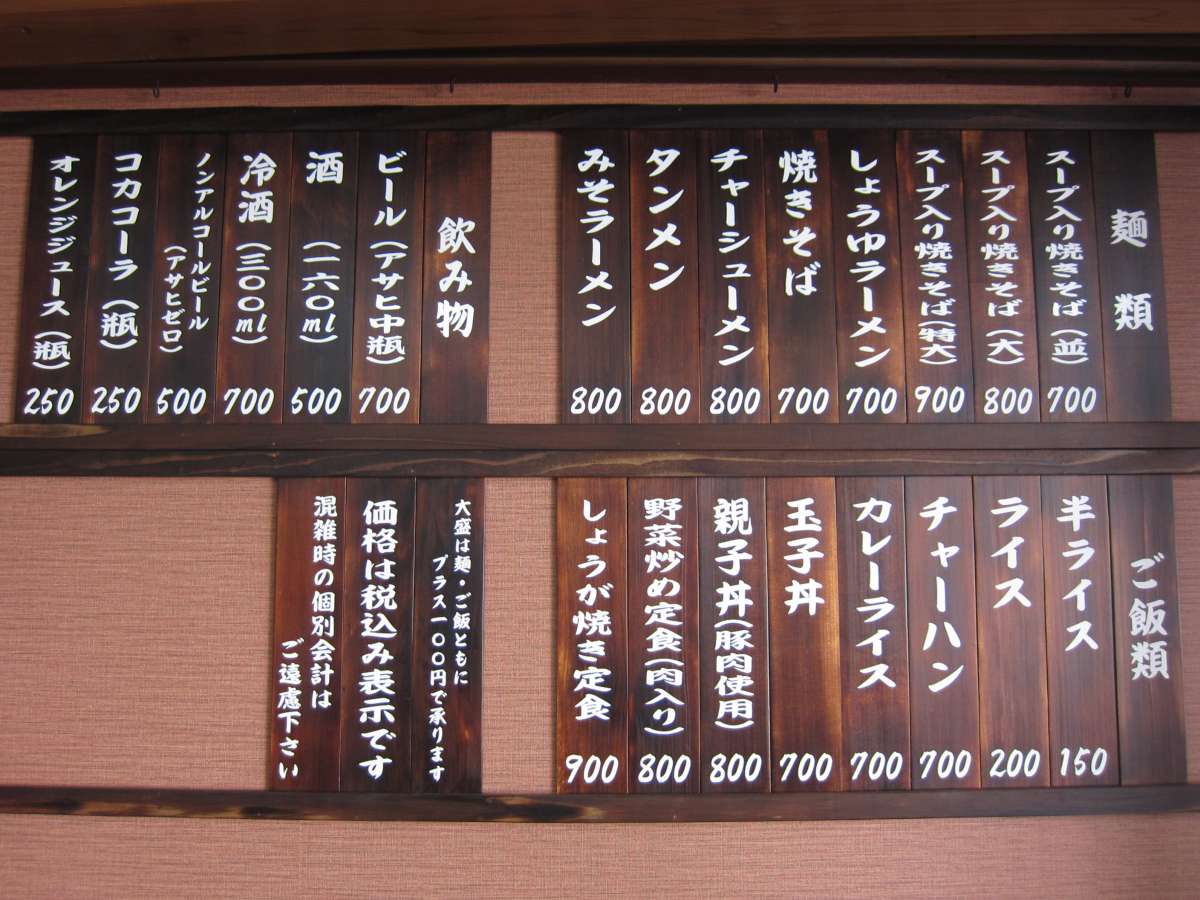 麺類
スープ入り焼きそば(並)
700
スープ入り焼きそば(大)
800
スープ入り焼きそば(特大)
900
しょうゆラーメン
700
焼きそば
700
チャーシューメン
800
タンメン
800
みそラーメン
800
飲み物
ビール(アサヒ中瓶)
700
酒(一六〇ml)
500
冷酒(三〇〇ml)
700
ノンアルコールビール
(アサヒゼロ)
500
コカコーラ(瓶)
250
オレンジジュース(瓶)
250
ご飯類
半ライス
150
ライス
200
チャーハン
700
カレーライス
700
玉子丼
700
親子丼(豚肉使用)
800
野菜炒め定食(肉入り)
800
しょうが焼き定食
900
大盛は麺・ご飯ともに
プラス一〇〇円で承ります
価格は税込み表示です
混雑時の個別会計は
ご遠慮下さい